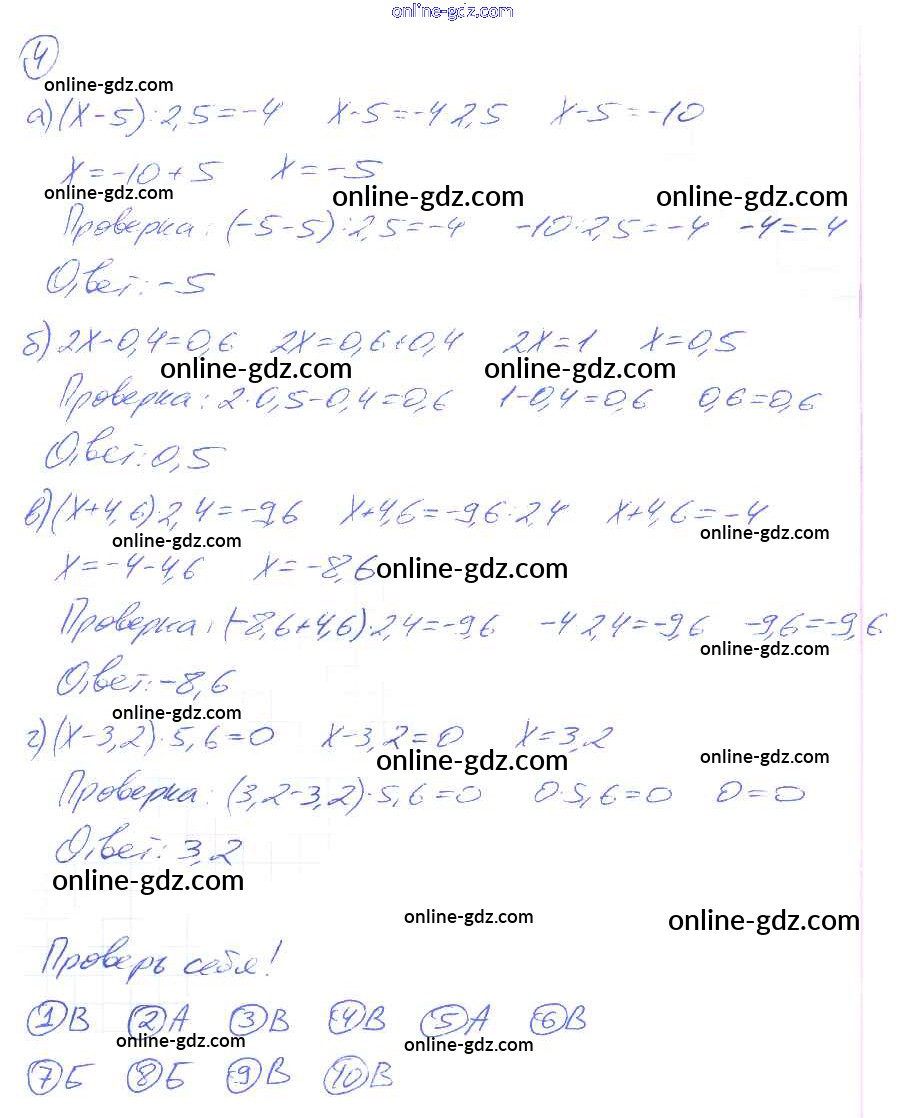 online-gdz.com
4
online-gdz.com
а) (х-5):2,5=-4 х-5=-4·2,5 х-5=-10
х=-10+5 х=-5
online-gdz.com online-gdz.com online-gdz.com
Проверка: (-5-5):2,5=-4 -10:2,5=-4 -4=-4
Ответ: -5
б) 2х-0,4=0,6 2х=0,6+0,4 2х=1 х=0,5
online-gdz.com online-gdz.com
Проверка: 2·0,5-0,4=0,6 1-0,4=0,6 0,6=0,6
Ответ: 0,5
в) (х+4,6)·2,4=-9,6 х+4,6=-9,6:2,4 х+4,6=-4
online-gdz.com online-gdz.com
х=-4-4,6 х=-8,6 online-gdz.com
Проверка: (-8,6+4,6)·2,4=-9,6 -4·2,4=-9,6 -9,6=-9,6
online-gdz.com
Ответ: -8,6
online-gdz.com
г) (х-3,2)·5,6=0 х-3,2=0 х=3,2
online-gdz.com online-gdz.com
Проверка: (3,2-3,2)·5,6=0 0·5,6=0 0=0
Ответ: 3,2
online-gdz.com
online-gdz.com online-gdz.com
Проверь себя!
1 В 2 А 3 В 4 В 5 А 6 В
online-gdz.com online-gdz.com
7 Б 8 Б 9 В 10 В